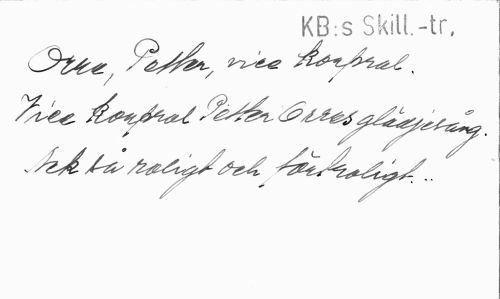 KB:s Skill.-tr.
Orre, Petter, vice korpral.
Vice korpral Petter Orres glädjesång.
Ack så roligt och förtroligt...